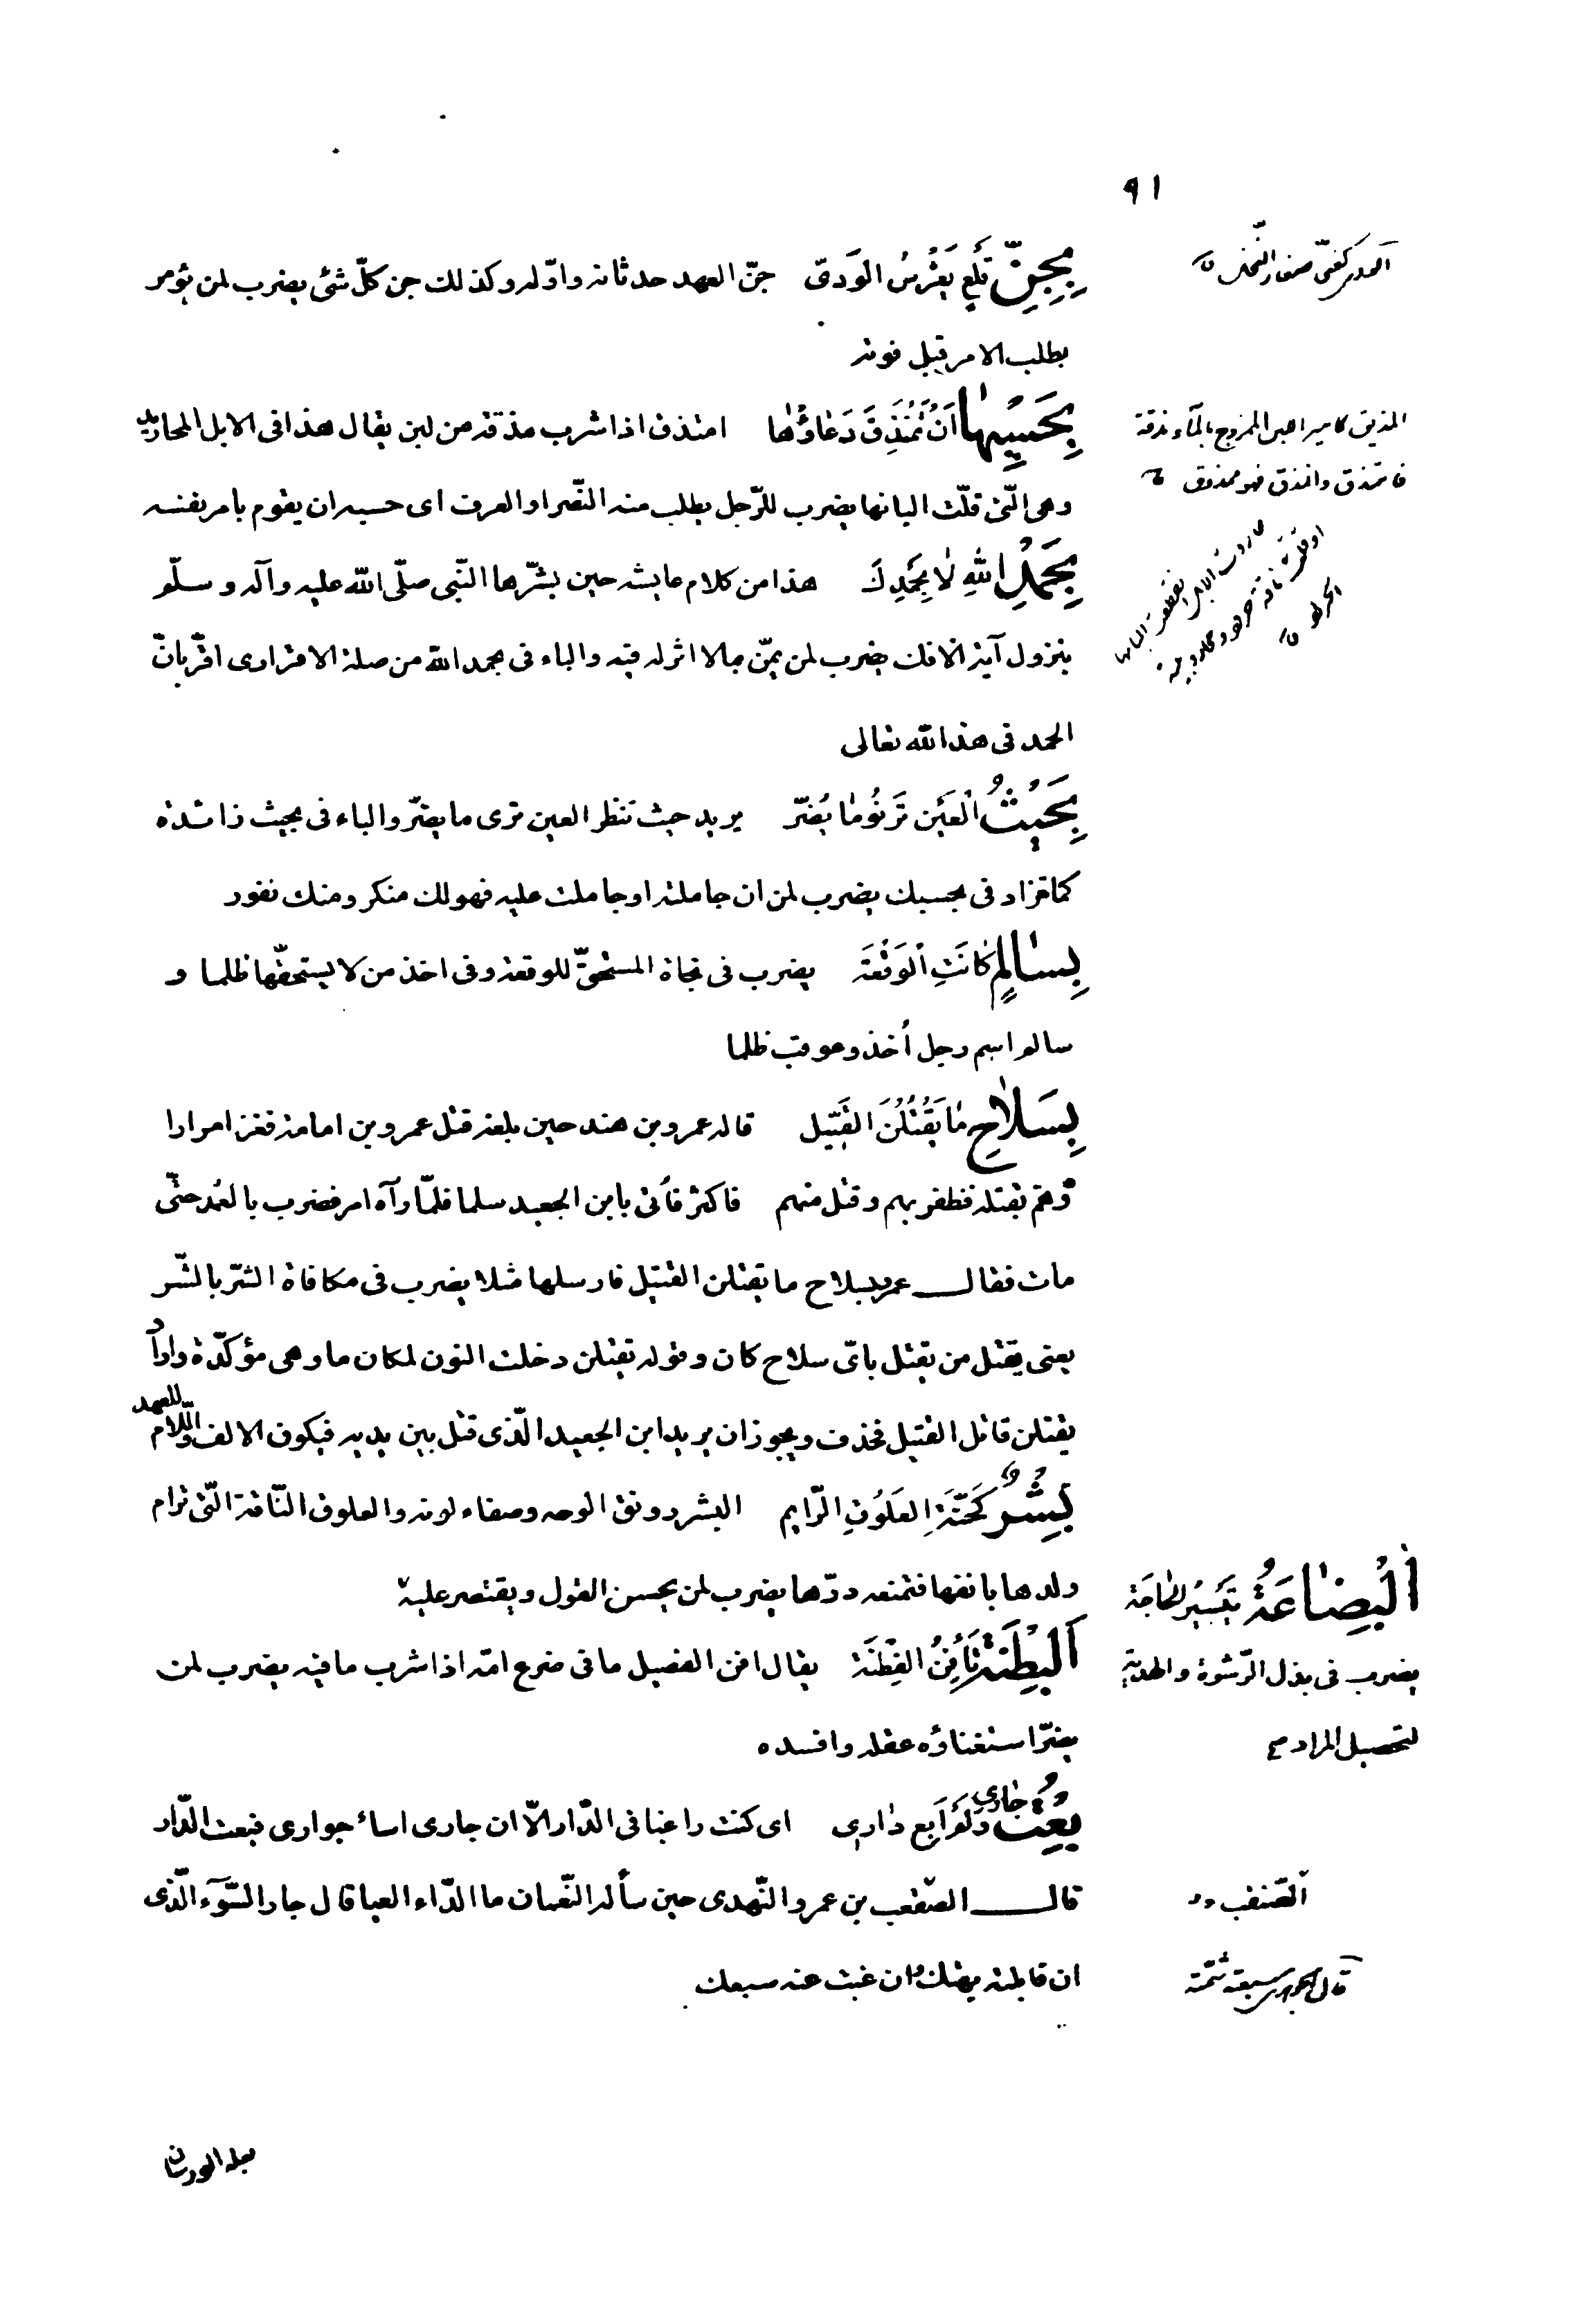 ٩١
بِجِنِّ تَلَعٍ يَغْرُسُ الوَدىّ جنّ العهد حدثانه واوّله وكذلك جن كلّ شئ يضرب لمن يؤمر
بطلب الامر قبل فوته
بِحَسْبِهٰا اَنْ تَمْتَذِقَ دَعٰاؤُهٰا امتذق اذا شرب مذقة من لبن يقال هذا فى الابل المحاريد
وهى الّتى قلّت البانها يضرب للرّجل يطلب منه النّصر او العرف اى حسبه ان يقوم بامر نفسه
بِحَمْدِ اللهِ لٰا بِحَمْدِكَ هذا من كلام عايشه حين بشّرها النّبى صلّى الله عليه وآله وسلّم
بنزول آية الافك يضرب لمن يمنّ بما لا اثر له فيه والباء فى بحمد الله من صلة الاقرار اى اقرّ بانّ
الحمد فى هذا لله تعالى
بِحَيْثُ الْعَيْن تَرْنُو مٰا يُضَرّ يريد حيث تنظر العين ترى ما يضرّ والباء فى بحيث زائدة
كما تزاد فى بحسبك يضرب لمن ان جاملته او جاملت عليه فهو لك منكر ومنك نفور
بِسٰالِمٍ كٰانَتِ اْلوَقْعَة يضرب فى نجاة المستحقّ للوقعة وفى اخذ من لا يستحقّها ظلما و
سالم اسم رجل أخذ وعوقب ظلما
بِسَلاٰحٍ مٰا يَقْتُلَنَّ القَتيل قاله عمرو بن هند حين بلغه قتل عمرو بن امامة فغزا مرادا
وهم بقتله فظفر بهم وقتل منهم فاكثر فأتى بابن الجعيد سلما فلمّا رآه امر فضرب بالغمد حتّى
مات فقال عمرو بسلاح ما يقتلن القتيل فارسلها مثلا يضرب فى مكافاة الشّر بالشّر
يعنى يقتل من يقتل باىّ سلاح كان وقوله تقتلن دخلت النون لمكان ما وهى مؤكّدة واراد
يقتلن قاتل القتيل فحذف ويجوز ان يريد ابن الجعيد الّذى قتل بين يديه فيكون الالف واللّام للعهد
بِشْرٌ كَحَنَّةِ العَلُوقِ الرّايم البشر رونق الوجه وصفاء لونه والعلوق النّاقة الّتى ترام
ولدها بانفها فتمنعه درّها يضرب لمن يحسن القول ويقتصر عليه
اَلبِطْنَةُ تَأْفِنُ الفِطْنَة يقال افن الفصيل ما فى ضرع امّه اذا شرب ما فيه يضرب لمن
يضرّ استغناؤه عقله وافسده
بِعْتُ جٰارى وَلَمْ اَبِع دٰارِى اى كنت راغبا فى الدّار الّا ان جارى اساء جوارى فبعت الدّار
قال الصّقعب بن عمرو النّهدى حين سأله النّعمان ما الدّاء العيا قال جار السّوء الّذى
ان قابلته بهتك وان غبت عنه سبعك
الودى كغنىّ صغار النّخل
المذيق كامير اللبن الممزوج بالماء مذقه
فامتذق وانمذق فهو ممذوق
حاردت الابل انقطعت البانها
او قلت ناقة حرود ومحاردة
اَلْبِضٰاعَةُ تيَسِّرُ الحٰاجَة
يضرب فى بذل الرّشوة والهديّة
لتحصيل المراد
الصّقعب
قال الجوهرى سبعته شتمته